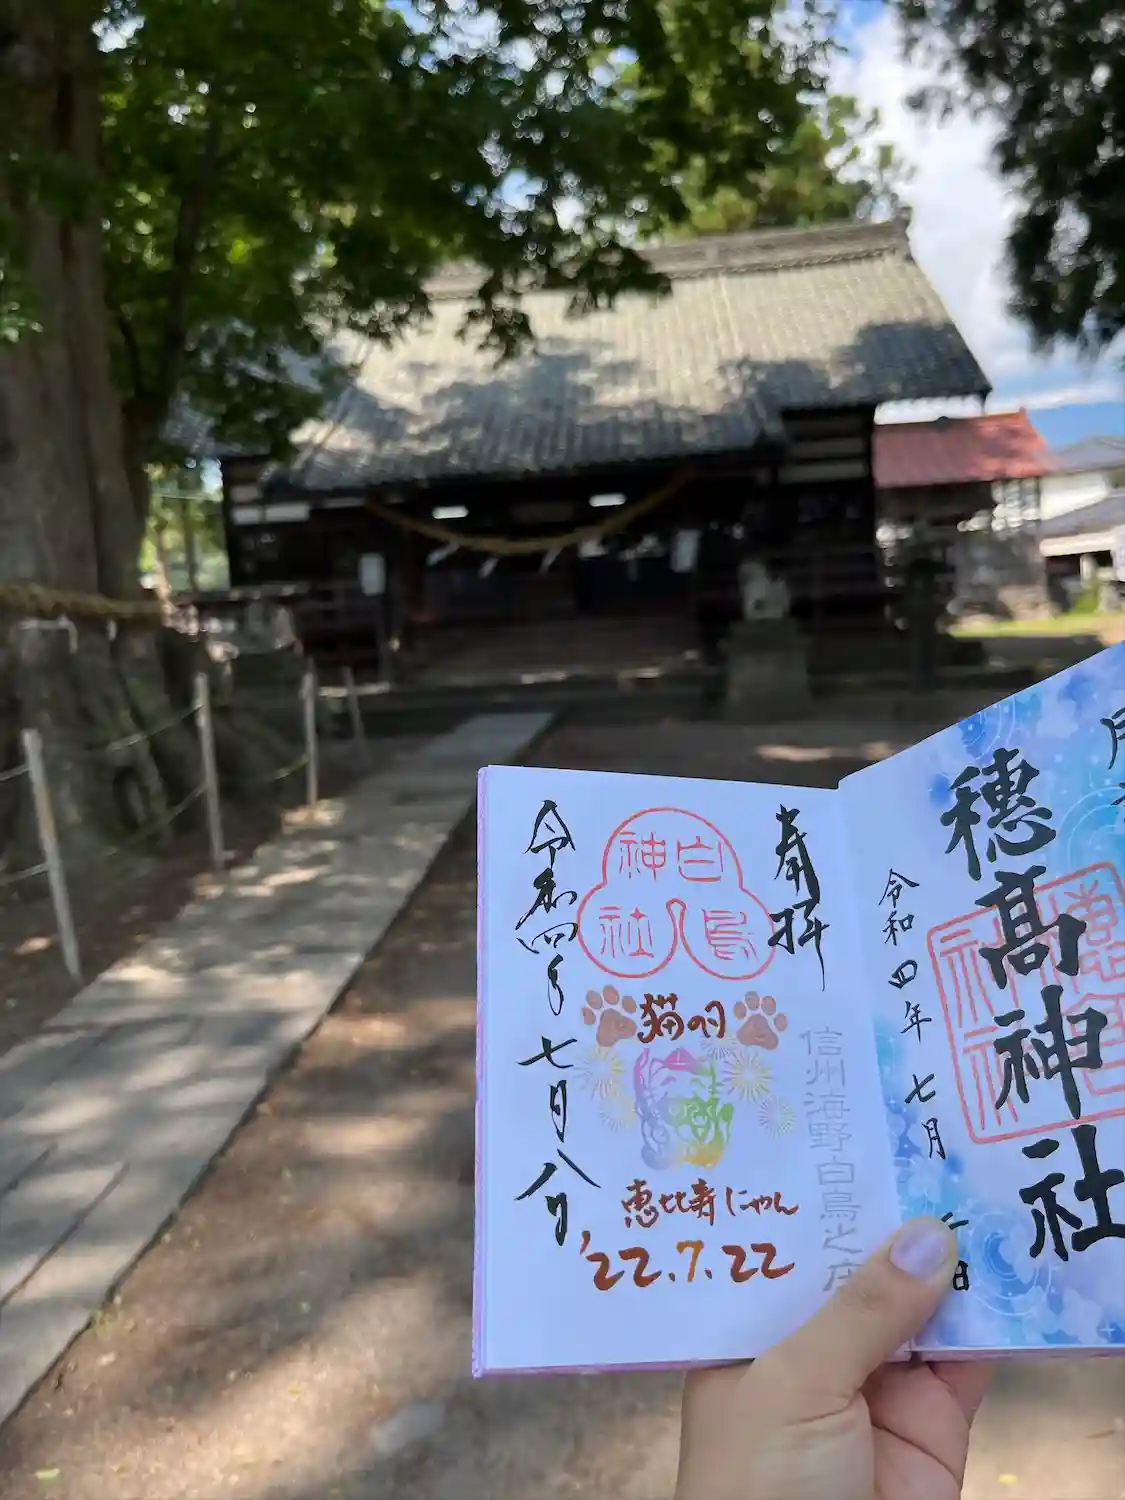 奉拝
白鳥神社
猫の日
恵比寿にゃん
'22.7.22
信州海野白鳥之庄
令和四年七月八日
穂髙神社
令和四年七月